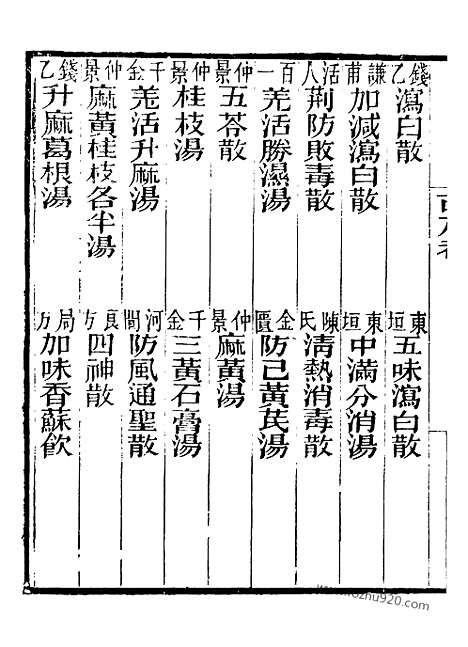 錢乙 瀉白散
東垣 五味瀉白散
謙甫 加減瀉白散
東垣 中滿分消湯
活人 荆防敗毒散
陳氏 清熱消毒散
百一 羌活勝濕湯
金匱 防己黃芪湯
仲景 五苓散
仲景 麻黃湯
仲景 桂枝湯
千金 三黃石膏湯
千金 羌活升麻湯
河間 防風通聖散
仲景 麻黃桂枝各半湯
良方 四神散
錢乙 升麻葛根湯
局方 加味香蘇飲